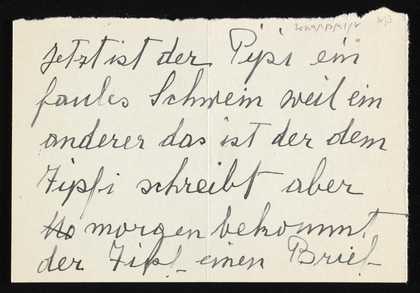 jetzt ist der Pipi ein
faules Schwein weil ein
anderer das ist der dem
Zipfi schreibt aber
morgen bekommt
der Zipf einen Brief